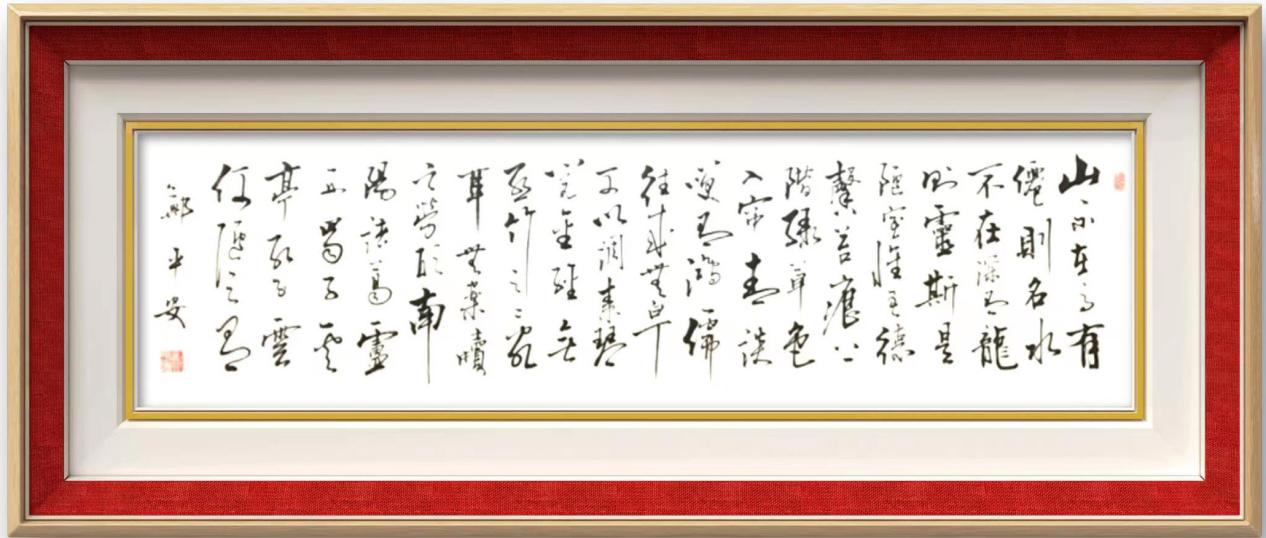 山不在高有
僊則名水
不在深有龍
則靈斯是
陋室惟吾德
馨苔痕上
階緑草色
入帘青談
笑有鴻儒
往來無白丁
可以調素琴
閲金經無
絲竹之亂
耳無案牘
之勞形南
陽諸葛廬
西蜀子雲
亭孔子雲
何陋之有
平安